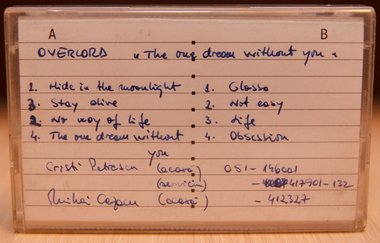 A B
OVERLORD "The one dream without you"
1. Hide in the moonlight
2. Stay alive
3. No way of life
4. The one dream without you
1. Glossa
2. Not easy
3. Life
4. Obsession
Cristi Petrescu (acasă) 051-146001
(serviciu) - 417701-132
Mihai Cazan (acasă) - 412327